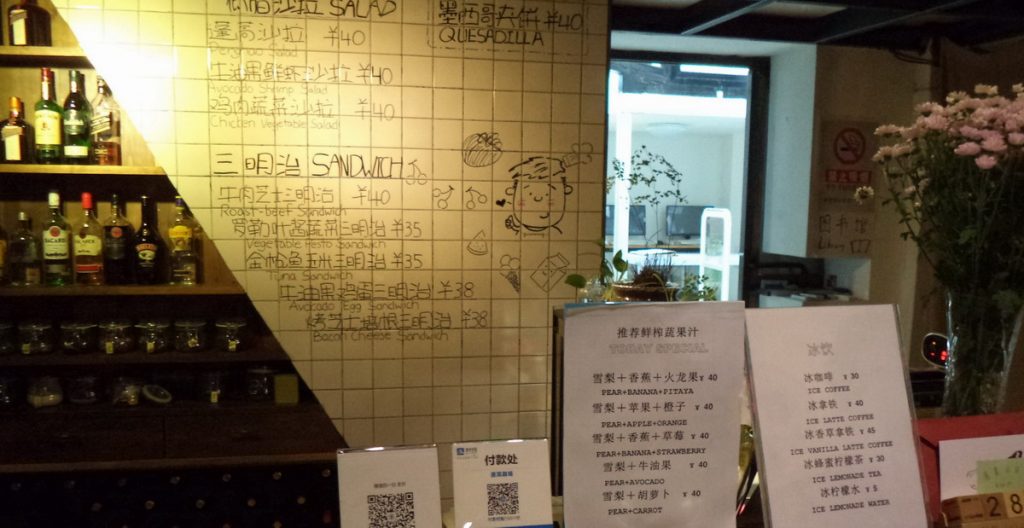 SALAD
蓬蒿沙拉 ¥40
Penghao Salad
牛油果鲜虾沙拉 ¥40
Avocado Shrimp Salad
鸡肉蔬菜沙拉 ¥40
Chicken Vegetable Salad
墨西哥夹饼 ¥40
QUESADILLA
三明治 SANDWICH
牛肉芝士三明治 ¥40
Roast-Beef Sandwich
罗勒叶酱蔬菜三明治 ¥35
Vegetable Pesto Sandwich
金枪鱼玉米三明治 ¥35
Tuna Sandwich
牛油果鸡蛋三明治 ¥38
Avocado Egg Sandwich
烤芝士培根三明治 ¥38
Bacon Cheese Sandwich
BACARDI
图书馆
付款处
推荐鲜榨蔬果汁
TODAY SPECIAL
雪梨+香蕉+火龙果¥ 40
PEAR+BANANA+PITAYA
雪梨+苹果+橙子 ¥ 40
PEAR+APPLE+ORANGE
雪梨+香蕉+草莓 ¥ 40
PEAR+BANANA+STRAWBERRY
雪梨+牛油果 ¥ 40
PEAR+AVOCADO
雪梨+胡萝卜 ¥ 40
PEAR+CARROT
冰饮
冰咖啡 ¥ 30
ICE COFFEE
冰拿铁 ¥ 40
ICE LATTE COFFEE
冰香草拿铁 ¥ 45
ICE VANILLA LATTE COFFEE
冰蜂蜜柠檬茶 ¥ 30
ICE LEMONADE TEA
冰柠檬水 ¥ 5
ICE LEMONADE WATER
28